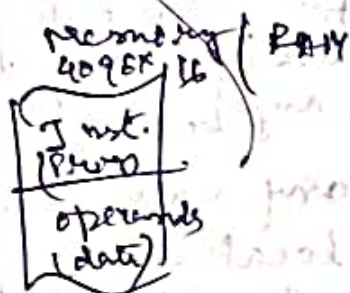 memory / RAM
4096 x 16
Inst.
(Prog)
operands
(data)